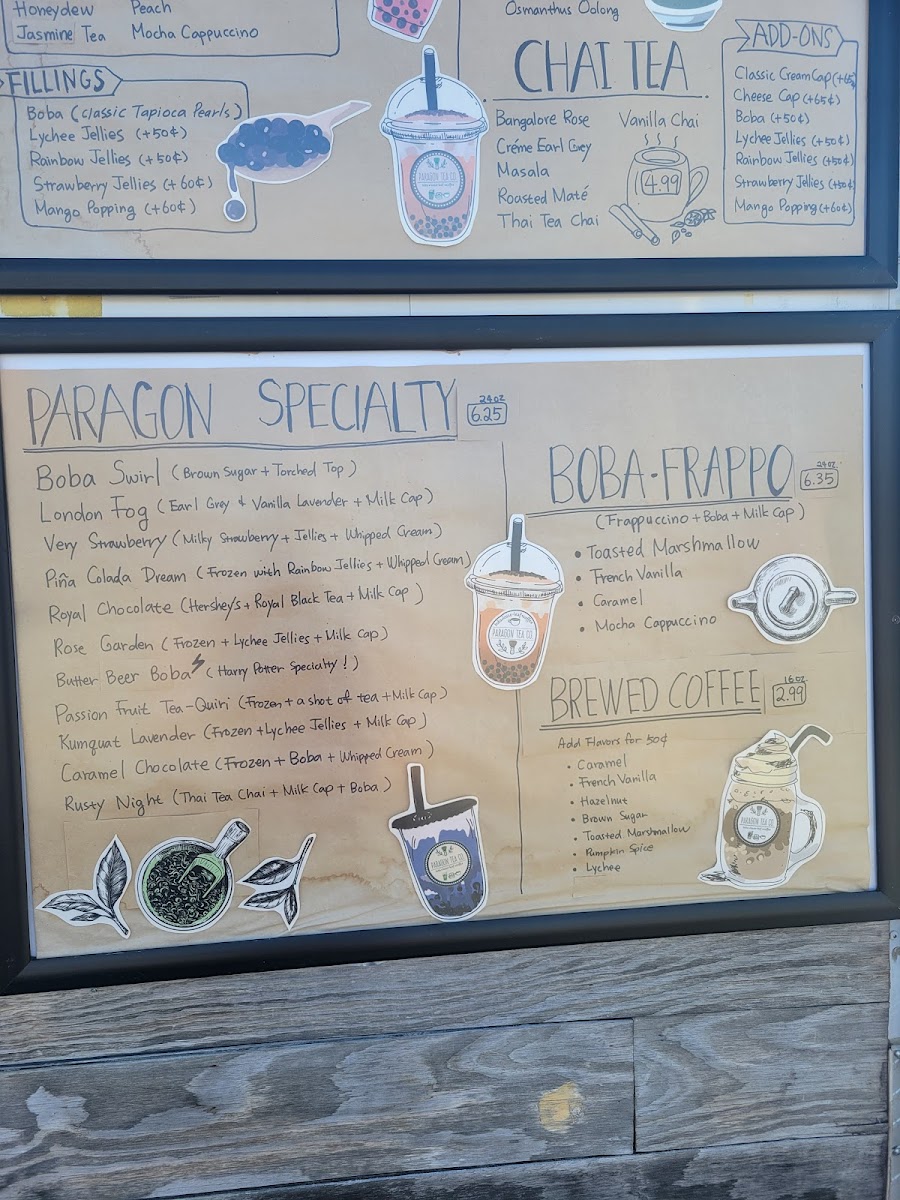 Honeydew Peach
Jasmine Tea Mocha Cappuccino
FILLINGS
Boba (Classic Tapioca Pearls)
Lychee Jellies (+50¢)
Rainbow Jellies (+50¢)
Strawberry Jellies (+60¢)
Mango Popping (+60¢)
PARAGON TEA CO
Osmanthus Oolong
CHAI TEA
Bangalore Rose
Créme Earl Grey
Masala
Roasted Maté
Thai Tea Chai
Vanilla Chai
4.99
ADD-ONS
Classic Cream Cap (+65¢)
Cheese Cap (+65¢)
Boba (+50¢)
Lychee Jellies (+50¢)
Rainbow Jellies (+50¢)
Strawberry Jellies
Mango Popping (+60¢)
PARAGON SPECIALTY
24oz
6.25
Boba Swirl (Brown Sugar + Torched Top)
London Fog (Earl Grey & Vanilla Lavender + Milk Cap)
Very Strawberry (Milky Strawberry + Jellies + Whipped Cream)
Piña Colada Dream (Frozen with Rainbow Jellies + Whipped Cream)
Royal Chocolate (Hershey's + Royal Black Tea + Milk Cap)
Rose Garden (Frozen + Lychee Jellies + Milk Cap)
Butter Beer Boba (Harry Potter Specialty!)
Passion Fruit Tea-Quiri (Frozen + a shot of tea + Milk Cap)
Kumquat Lavender (Frozen + Lychee Jellies + Milk Cap)
Caramel Chocolate (Frozen + Boba + Whipped Cream)
Rusty Night (Thai Tea Chai + Milk Cap + Boba)
PARAGON TEA CO
PARAGON TEA CO
BOBA-FRAPPO
24oz.
6.35
(Frappuccino + Boba + Milk Cap)
• Toasted Marshmallow
• French Vanilla
• Caramel
• Mocha Cappuccino
BREWED COFFEE
16oz
2.99
Add Flavors for 50¢
• Caramel
• French Vanilla
• Hazelnut
• Brown Sugar
• Toasted Marshmallow
• Pumpkin Spice
• Lychee
PARAGON TEA CO